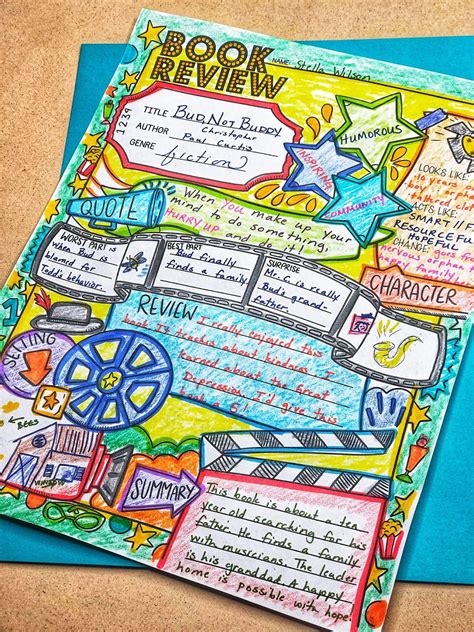 BOOK
REVIEW
NAME: Stella Wilson
TITLE BUD, NOT BUDDY
AUTHOR Christopher
Paul Curtis
GENRE fiction
1234
HUMOROUS
INSPIRING
COMMUNITY
LOOKS LIKE:
ACTS LIKE:
SMART
RESOURCEFUL
HOPEFUL
CHANGE: goes from
nervous orphan
happy family.
CHARACTER
QUOTE
When you make up your
mind to do something,
HURRY UP and do it!
WORST PART is
when Bud is
blamed for
Todd's behavior.
BEST PART
Bud finally
finds a family.
SURPRISE
Mr. C. is really
Bud's grand-
father.
REVIEW
I really enjoyed this
book. It teaches about kindness. I
learned about the Great
Depression. I'd give this
book a 5!
SETTING
BEES
WINDOW
SUMMARY
This book is about a ten
year old searching for his
father. He finds a family
with musicians. The leader
is his granddad. A happy
home is possible with hope!